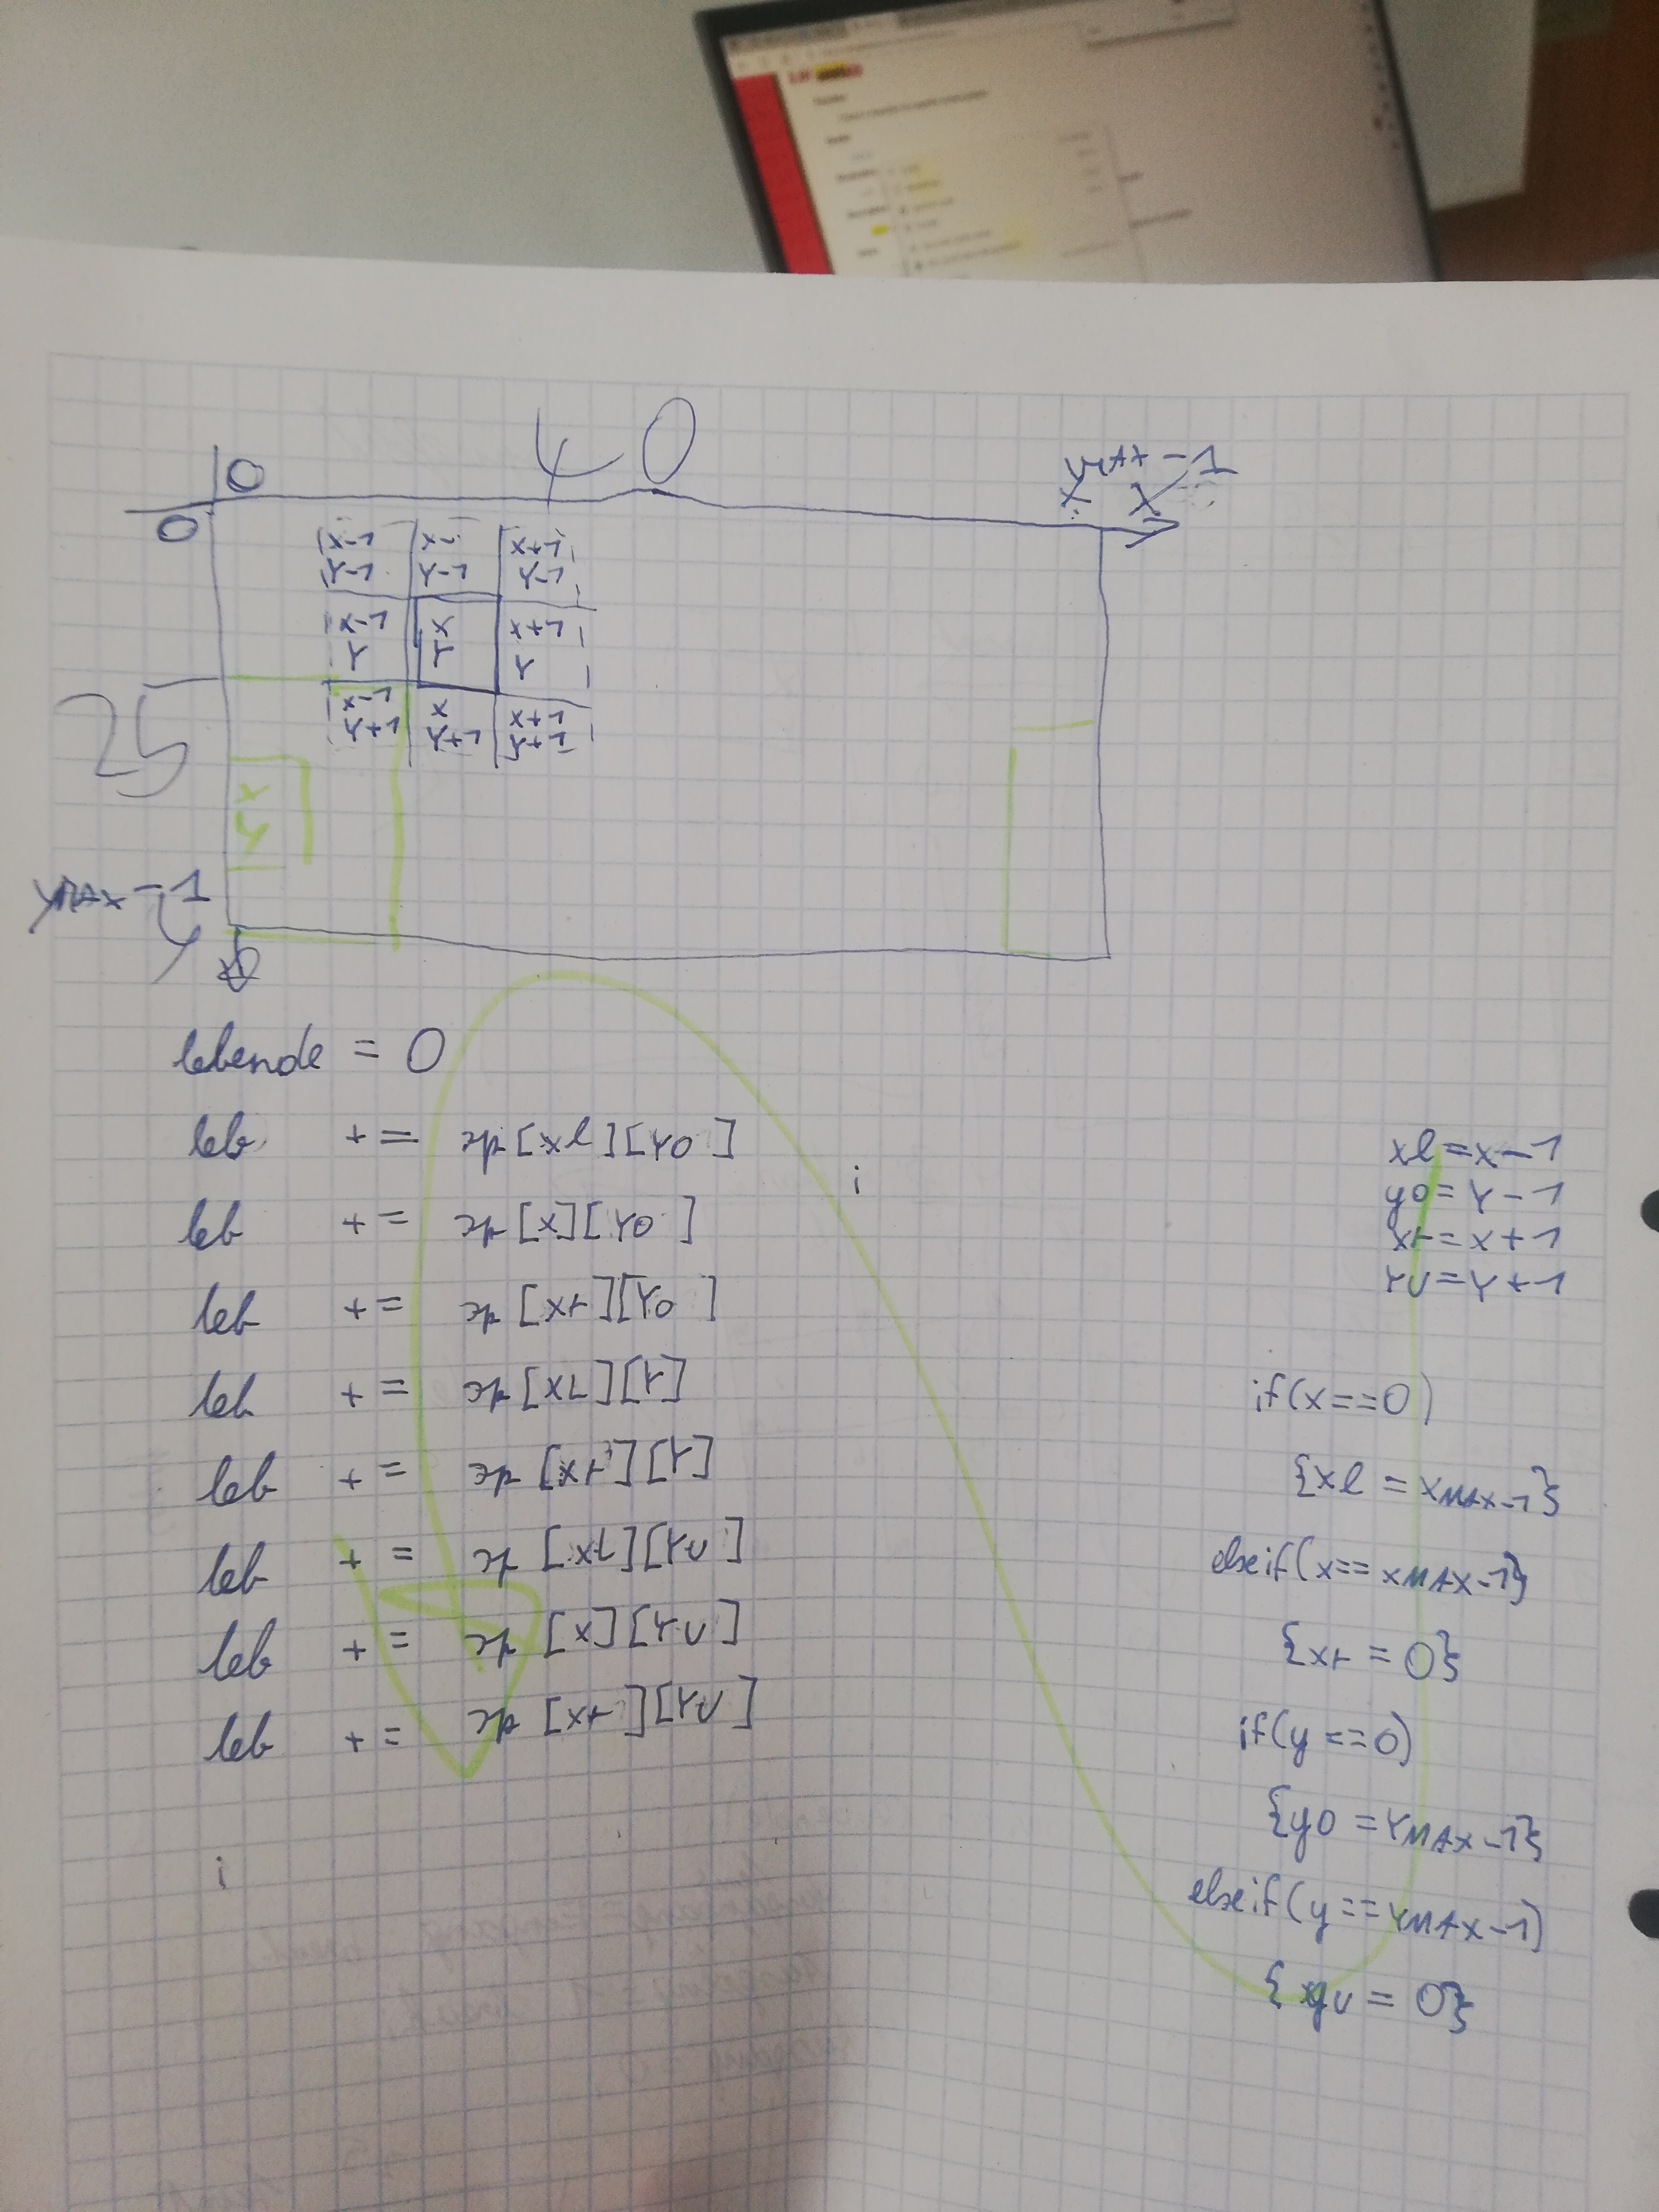 0 40 xMAX-1
0 X
x-1 x- x+1
Y-1 Y-1 Y-1
x-1 x x+1
Y Y Y
x-1 x x+1
Y+1 Y+1 Y+1
25
x
y
yMAX-1
y
lebende = 0
leb += sp[xl][Yo]
leb += sp[x][Yo]
leb += sp[xr][Yo]
leb += sp[xL][Y]
leb += sp[xr][Y]
leb += sp[xl][YU]
leb += sp[x][YU]
leb += sp[xr][YU]
i
i
xl=x-1
yo=Y-1
xr=x+1
YU=Y+1
if(x==0)
{xl = xMAX-1}
elseif(x==xMAX-1}
{xr = 0}
if(y==0)
{yo = YMAX-1}
elseif(y==YMAX-1)
{yu = 0}